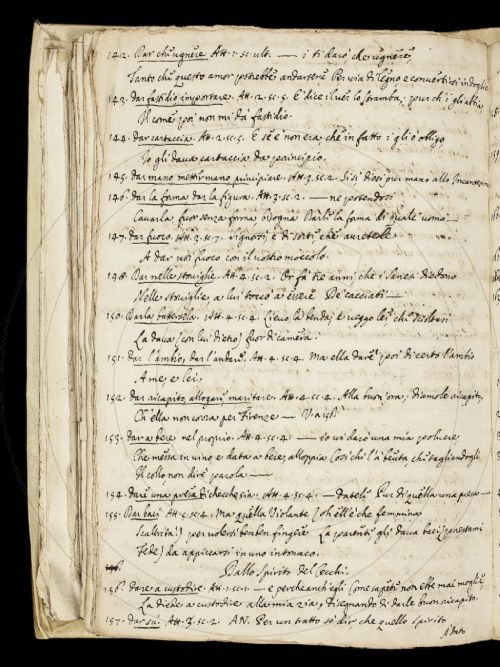 142. Dar ch'ugnere Att. 1. sc. ult. — i ti darò che ugnere,
Tanto ch'è questo amor potrebbe andarsene Per via di legno e convertirsi in doglie
143. dar fastidio importare. Att. 2. sc. 5. E dice il ver lo stramba; pur ch'i gli abbia
Il come poi non mi dà fastidio.
144. dar cartaccia. Att. 2. sc. 5. E se e' non era che in fatto i gli ò obligo
Io gli dava cartaccia da principio.
145. dar mano metter mano principiare. Att. 3. sc. 2. Si si diesi pur mano allo
146. dar la forma dar la figura. Att. 3. sc. 2. — ne potendosi
Cavarla fuor senza forma bisogna Darli la forma di qualc' uomo —
147. dar fuoco. Att. 3. sc. 7. Signorsì, e di sorte che avereste
A dar voi fuoco con il vostro moccolo.
148. Dar nelle stoviglie. Att. 4. sc. 2. Or fa tre anni che i Sanesi diedono
Nelle stoviglie, a lui toccò a essere De' cacciati —
150. Dar la Att. 4. sc. 4. (Lievo la benda) e veggo lei che
La dava (con lui dietro) fuor di camera.
151. dar l'ambio, dar l'andare. Att. 4. sc. 4. Ma ella darè poi di certo l'ambio
A me, e lei.
152. dar ricapito, allogare maritare. Att. 4. sc. 4. Alla buon' ora; diamole ricapito,
Ch' ella non corra per Firenze —
153. dar a bere nel proprio. Att. 4. sc. 4. — io vi darò una mia polvere,
Che messa in vino e data a bere, alloppia Così chi l'à beuta che tagliandogli
Il collo non dire parola —
154. dare una presa di checchesia. Att. 4. sc. 4. — datele Pur di quella una presa —
155. Dar baci Att. 5. sc. 4. Ma quella Violante (oh ell' è che femmina
Scaltrita!) per volersi ben ben fingere La parente gli dava baci (prestami
Fede) da appiccarsi in uno intonaco.
Dallo Spirito del Cecchi.
156. dare a custodire. Att. 1. sc. 1. — e perche anch' egli Come sapete non ebbe mai moglie,
La diede a custodire alla mia zia, Disegnando di darle buon ricapito.
157. dar sui. Att. 3. sc. 2. AN. Per un tratto so dir che quello spirito